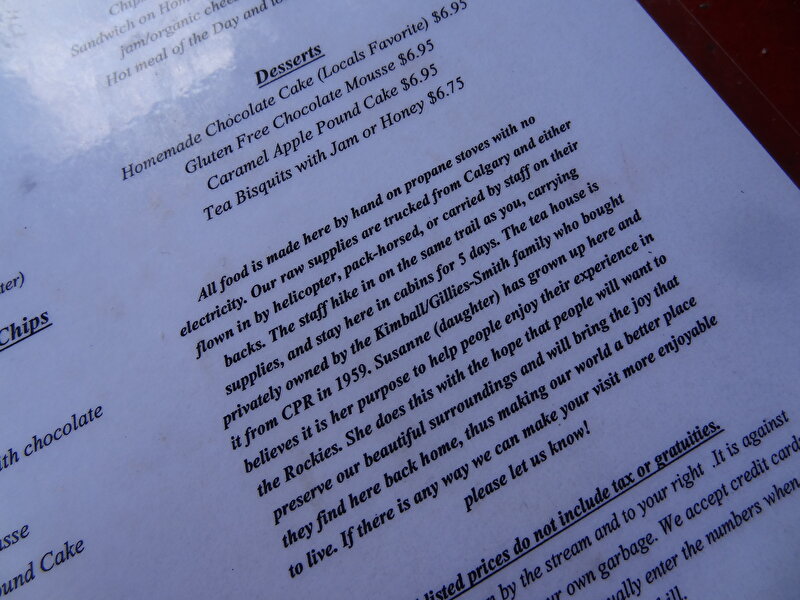 Chips
Sandwich on Hom
jam/organic chee
Hot meal of the Day and
Desserts
Homemade Chocolate Cake (Locals Favorite) $6.95
Gluten Free Chocolate Mousse $6.95
Caramel Apple Pound Cake $6.95
Tea Bisquits with Jam or Honey $6.75
All food is made here by hand on propane stoves with no
electricity. Our raw supplies are trucked from Calgary and either
flown in by helicopter, pack-horsed, or carried by staff on their
backs. The staff hike in on the same trail as you, carrying
supplies, and stay here in cabins for 5 days. The tea house is
privately owned by the Kimball/Gillies-Smith family who bought
it from CPR in 1959. Susanne (daughter) has grown up here and
believes it is her purpose to help people enjoy their experience in
the Rockies. She does this with the hope that people will want to
preserve our beautiful surroundings and will bring the joy that
they find here back home, thus making our world a better place
to live. If there is any way we can make your visit more enjoyable
please let us know!
listed prices do not include tax or gratuities.
by the stream and to your right .It is against
our own garbage. We accept credit card
ually enter the numbers when
bill.
ter)
Chips
ith chocolate
sse
ound Cake